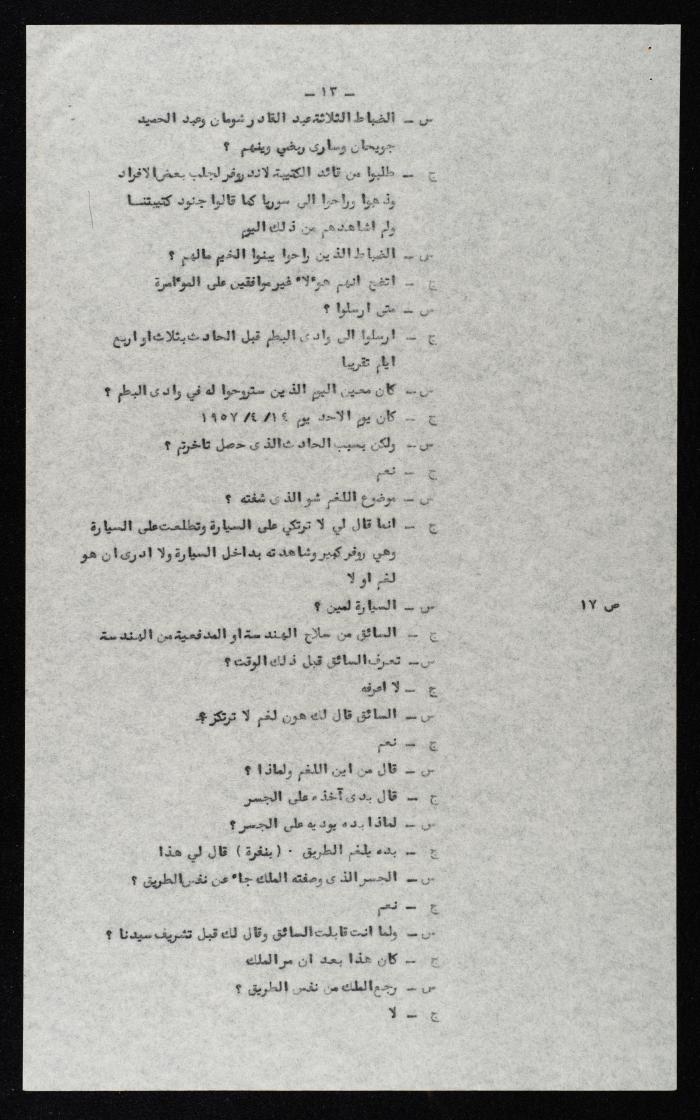 – ١٣ –
س – الضباط الثلاثة عبد القادر شومان وعبد الحميد
جويحان وساري ربضي وينهم ؟
ج – طلبوا من قائد الكتيبة لاندروفر لجلب بعض الافراد
وذهبوا وراحوا الى سوريا كما قالوا جنود كتيبتنا
ولم اشاهدهم من ذلك اليوم
س – الضباط الذين راحوا يبنوا الخيم مالهم ؟
ج – اتضح انهم هوءلاء غير موافقين على الموءامرة
س – متى ارسلوا ؟
ج – ارسلوا الى وادى البطم قبل الحادث بثلاث او اربع
ايام تقريبا
س – كان معين اليوم الذين ستروحوا له في وادى البطم ؟
ج – كان يوم الاحد يوم ١٤/ ٤/ ١٩٥٧
س – ولكن بسبب الحادث الذى حصل تاخرتم ؟
ج – نعم
س – موضوع اللغم شو الذى شفته ؟
ج – انما قال لي لا ترتكي على السيارة وتطلعت على السيارة
وهي روفر كبير وشاهدته بداخل السيارة ولا ادرى ان هو
لغم او لا
ص ١٧
س – السيارة لمين ؟
ج – السائق من سلاح الهندسة او المدفعية من الهندسة
س – تعرف السائق قبل ذلك الوقت ؟
ج – لا اعرفه
س – السائق قال لك هون لغم لا ترتكز ؟
ج – نعم
س – قال من اين اللغم ولماذا ؟
ج – قال بدى آخذه على الجسر
س – لماذا بده يوديه على الجسر ؟
ج – بده يلغم الطريق ٠ ( بنفرة ) قال لي هذا
س – الجسر الذى وصفته الملك جاء عن نفس الطريق ؟
ج – نعم
س – ولما انت قابلت السائق وقال لك قبل تشريف سيدنا ؟
ج – كان هذا بعد ان مر الملك
س – رجع الملك من نفس الطريق ؟
ج – لا